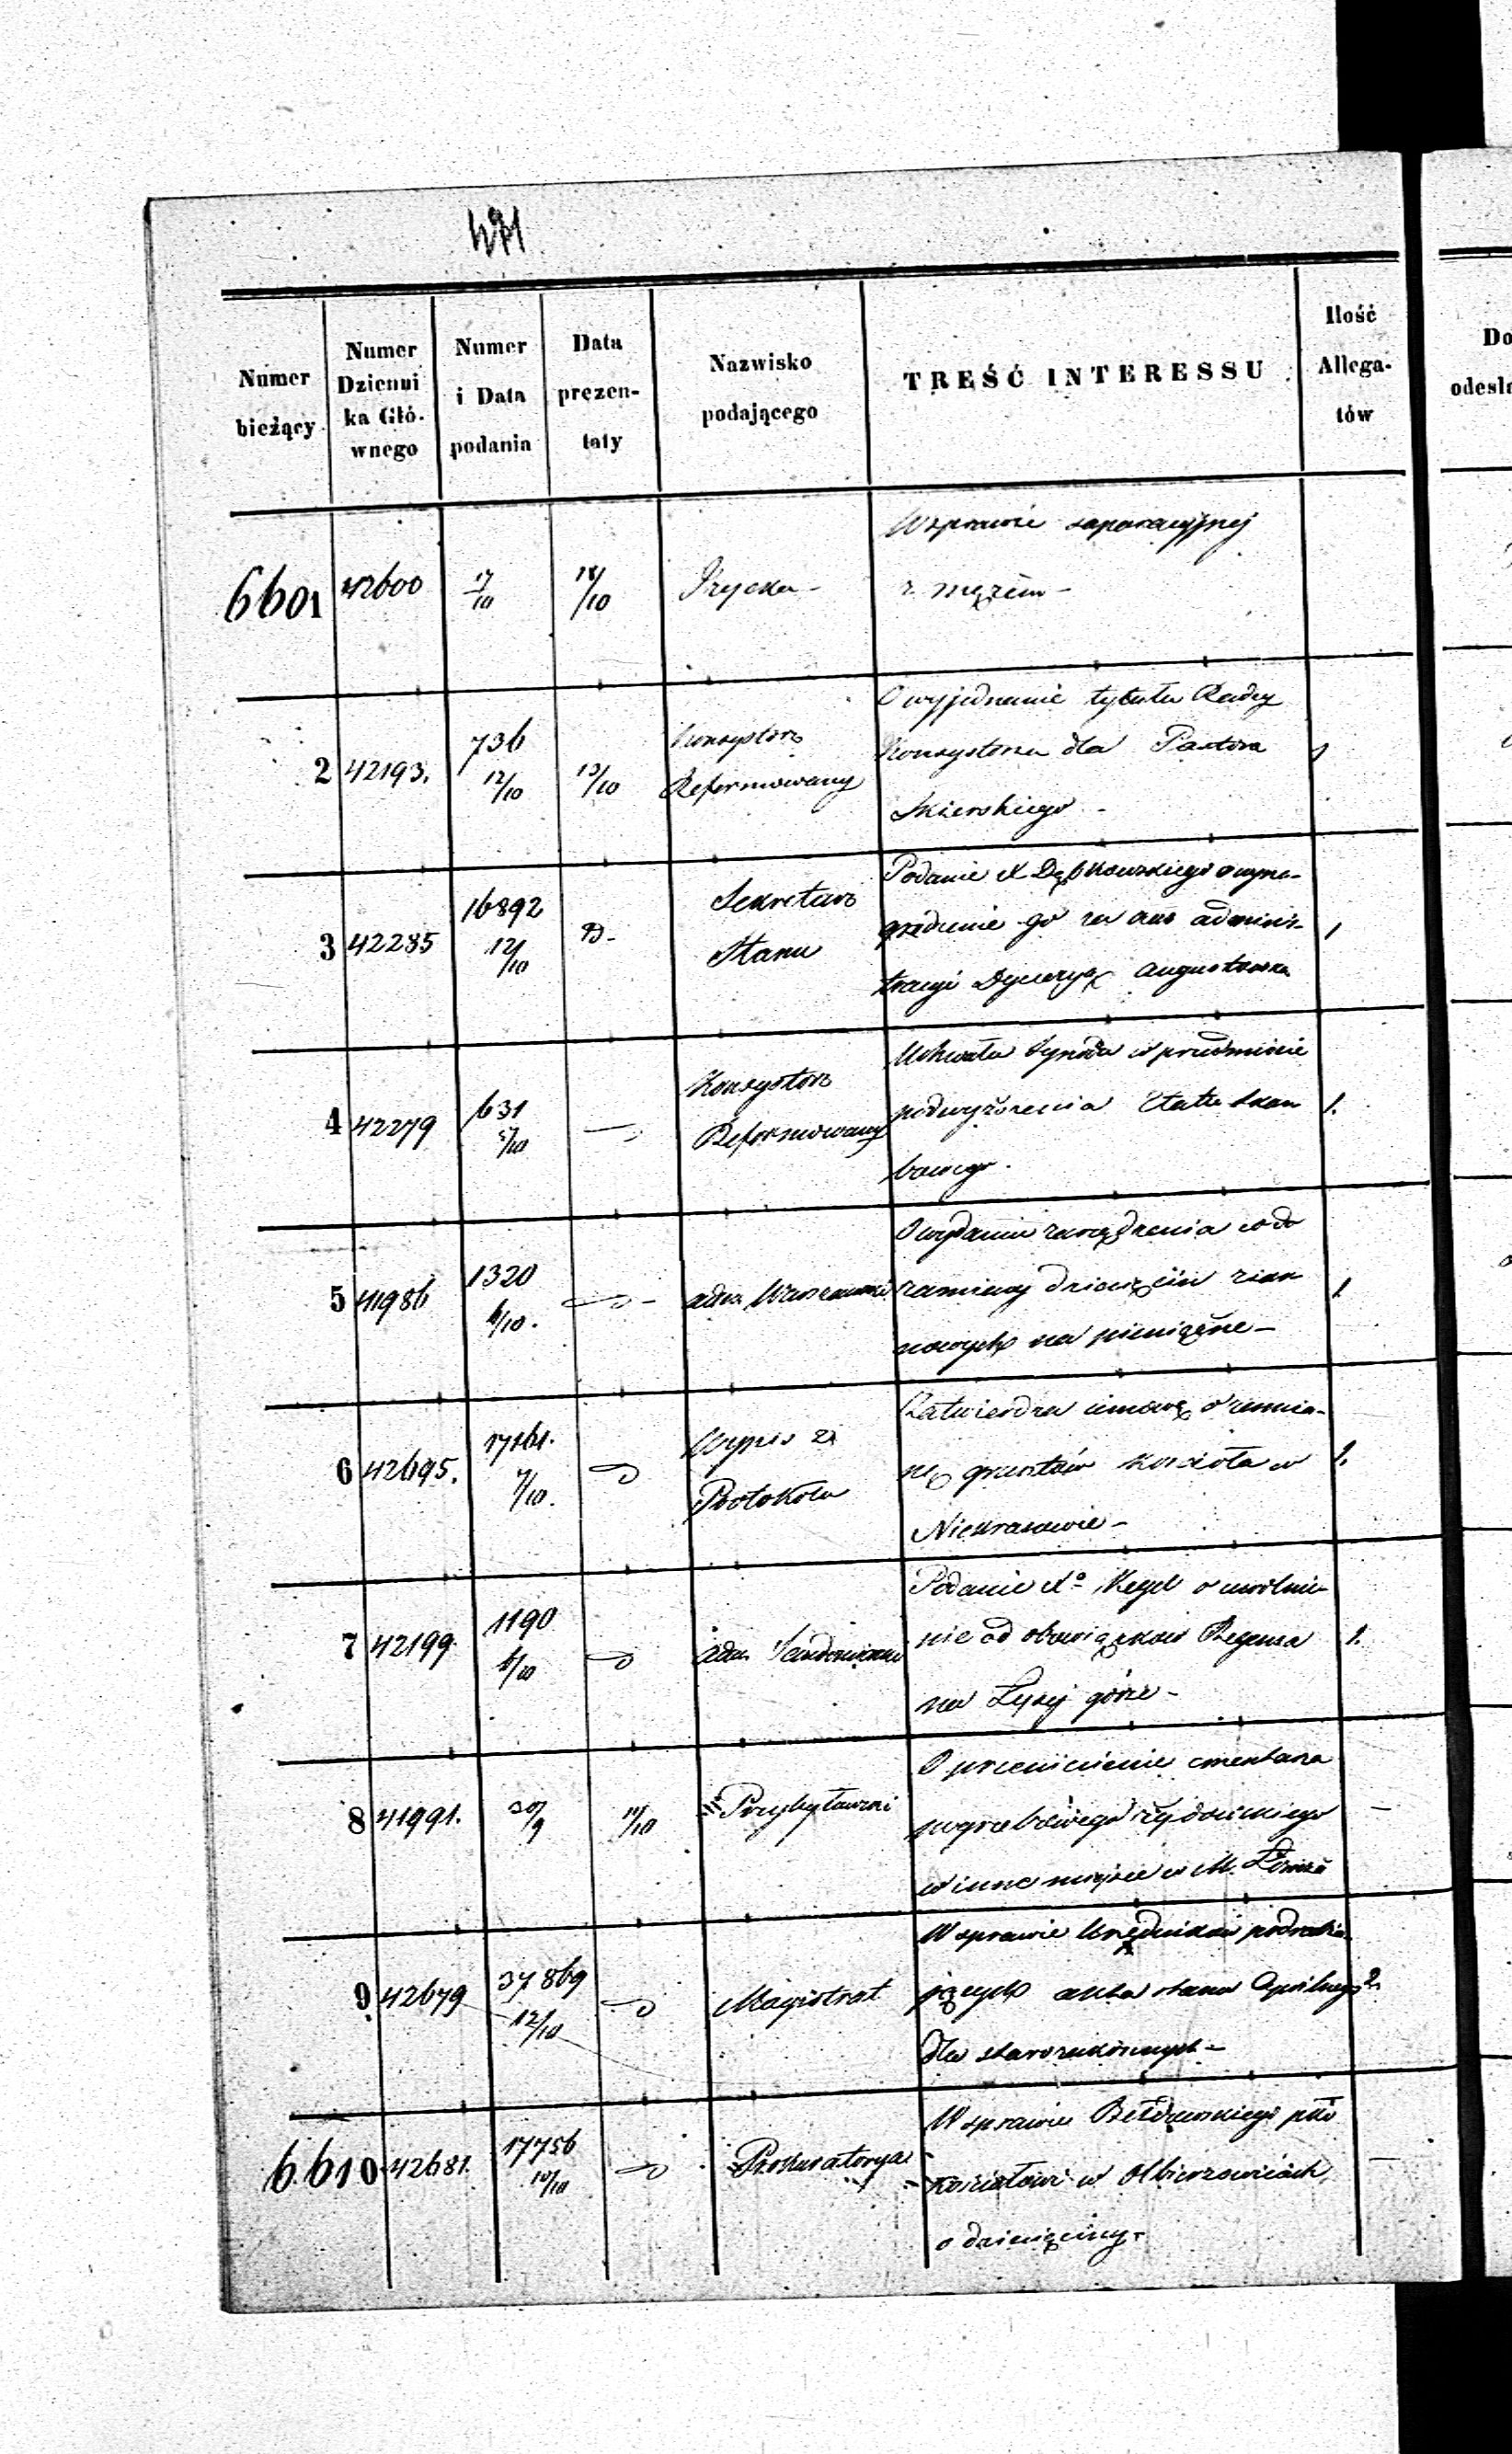 471
Numer bieżący
Numer Dziennika Głównego
Numer i Data podania
Data prezentaty
Nazwisko podającego
TREŚĆ INTERESSU
Ilość Allega-tów
Do
odesła
6601 42600 17/10 18/10
W sprawie separacyjnej
z mężem -
2 42193. 736 12/10 13/10
Konsystorz
Reformowany
O wyjednanie tytułu Radcy
Konsystorza dla Pastora
Skierskiego -
1
3 42285 16892 12/10 D-
Sekretarz
Stanu
Podanie X Dąbkowskiego o wyna-
grodzenie go za czas adminis-
tracyi Dyecezyą augustowską
1
4 42279 631 5/10 —
Konsystorz
Reformowany
Uchwała Synodu w przedmiocie
podwyższenia Etatu skar
bowego.
1.
5 41986 1320 6/10.
adm. Warszawski
O wydanie zarządzenia co do
zamiany dziesięcin ziar
nowych na pieniężne -
1
6 42695. 17161. 7/10.
Wypis z
Protokołu
Zatwierdza umowę o zamia-
nę gruntów kościoła w
Niekrasowie -
1.
7 42199. 1190 6/10
adm. Sandomierski
Podanie Xa Kegel o uwolnie-
nie od obowiązków Regensa
na Łysej górze -
1.
8 41991. 30/9 14/10
Przybyławski
O przeniesienie cmentarza
pogrzebowego żydowskiego
w inne miejsce w M.
—
9 42679 37869 12/10
Magistrat
W sprawie Urzędników podrabia
jących akta stanu Cywilnego
dla starozakonnych -
2.
6610 42681. 17756 10/10
Prokuratorya
W sprawie Bełdowskiego pko
kościołowi w Olbierzowicach
o dziesięciny.
—